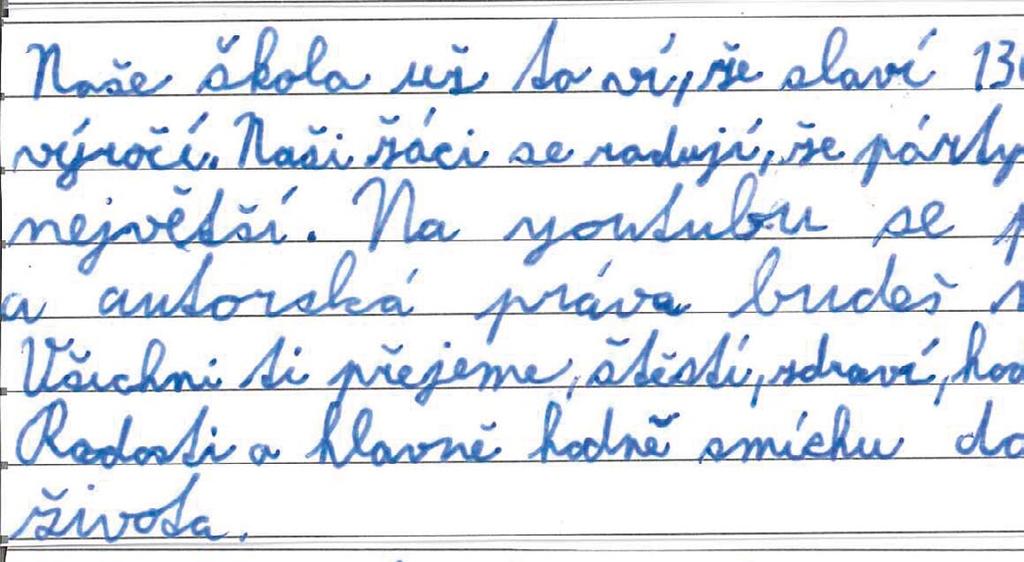 Naše škola už to ví, že slaví 13
výročí. Naši žáci se radují, že párty
největší. Na youtubu se
a autorská práva budeš
Všichni ti přejeme, štěstí, zdraví,
Radosti a hlavně hodně smíchu do
života.